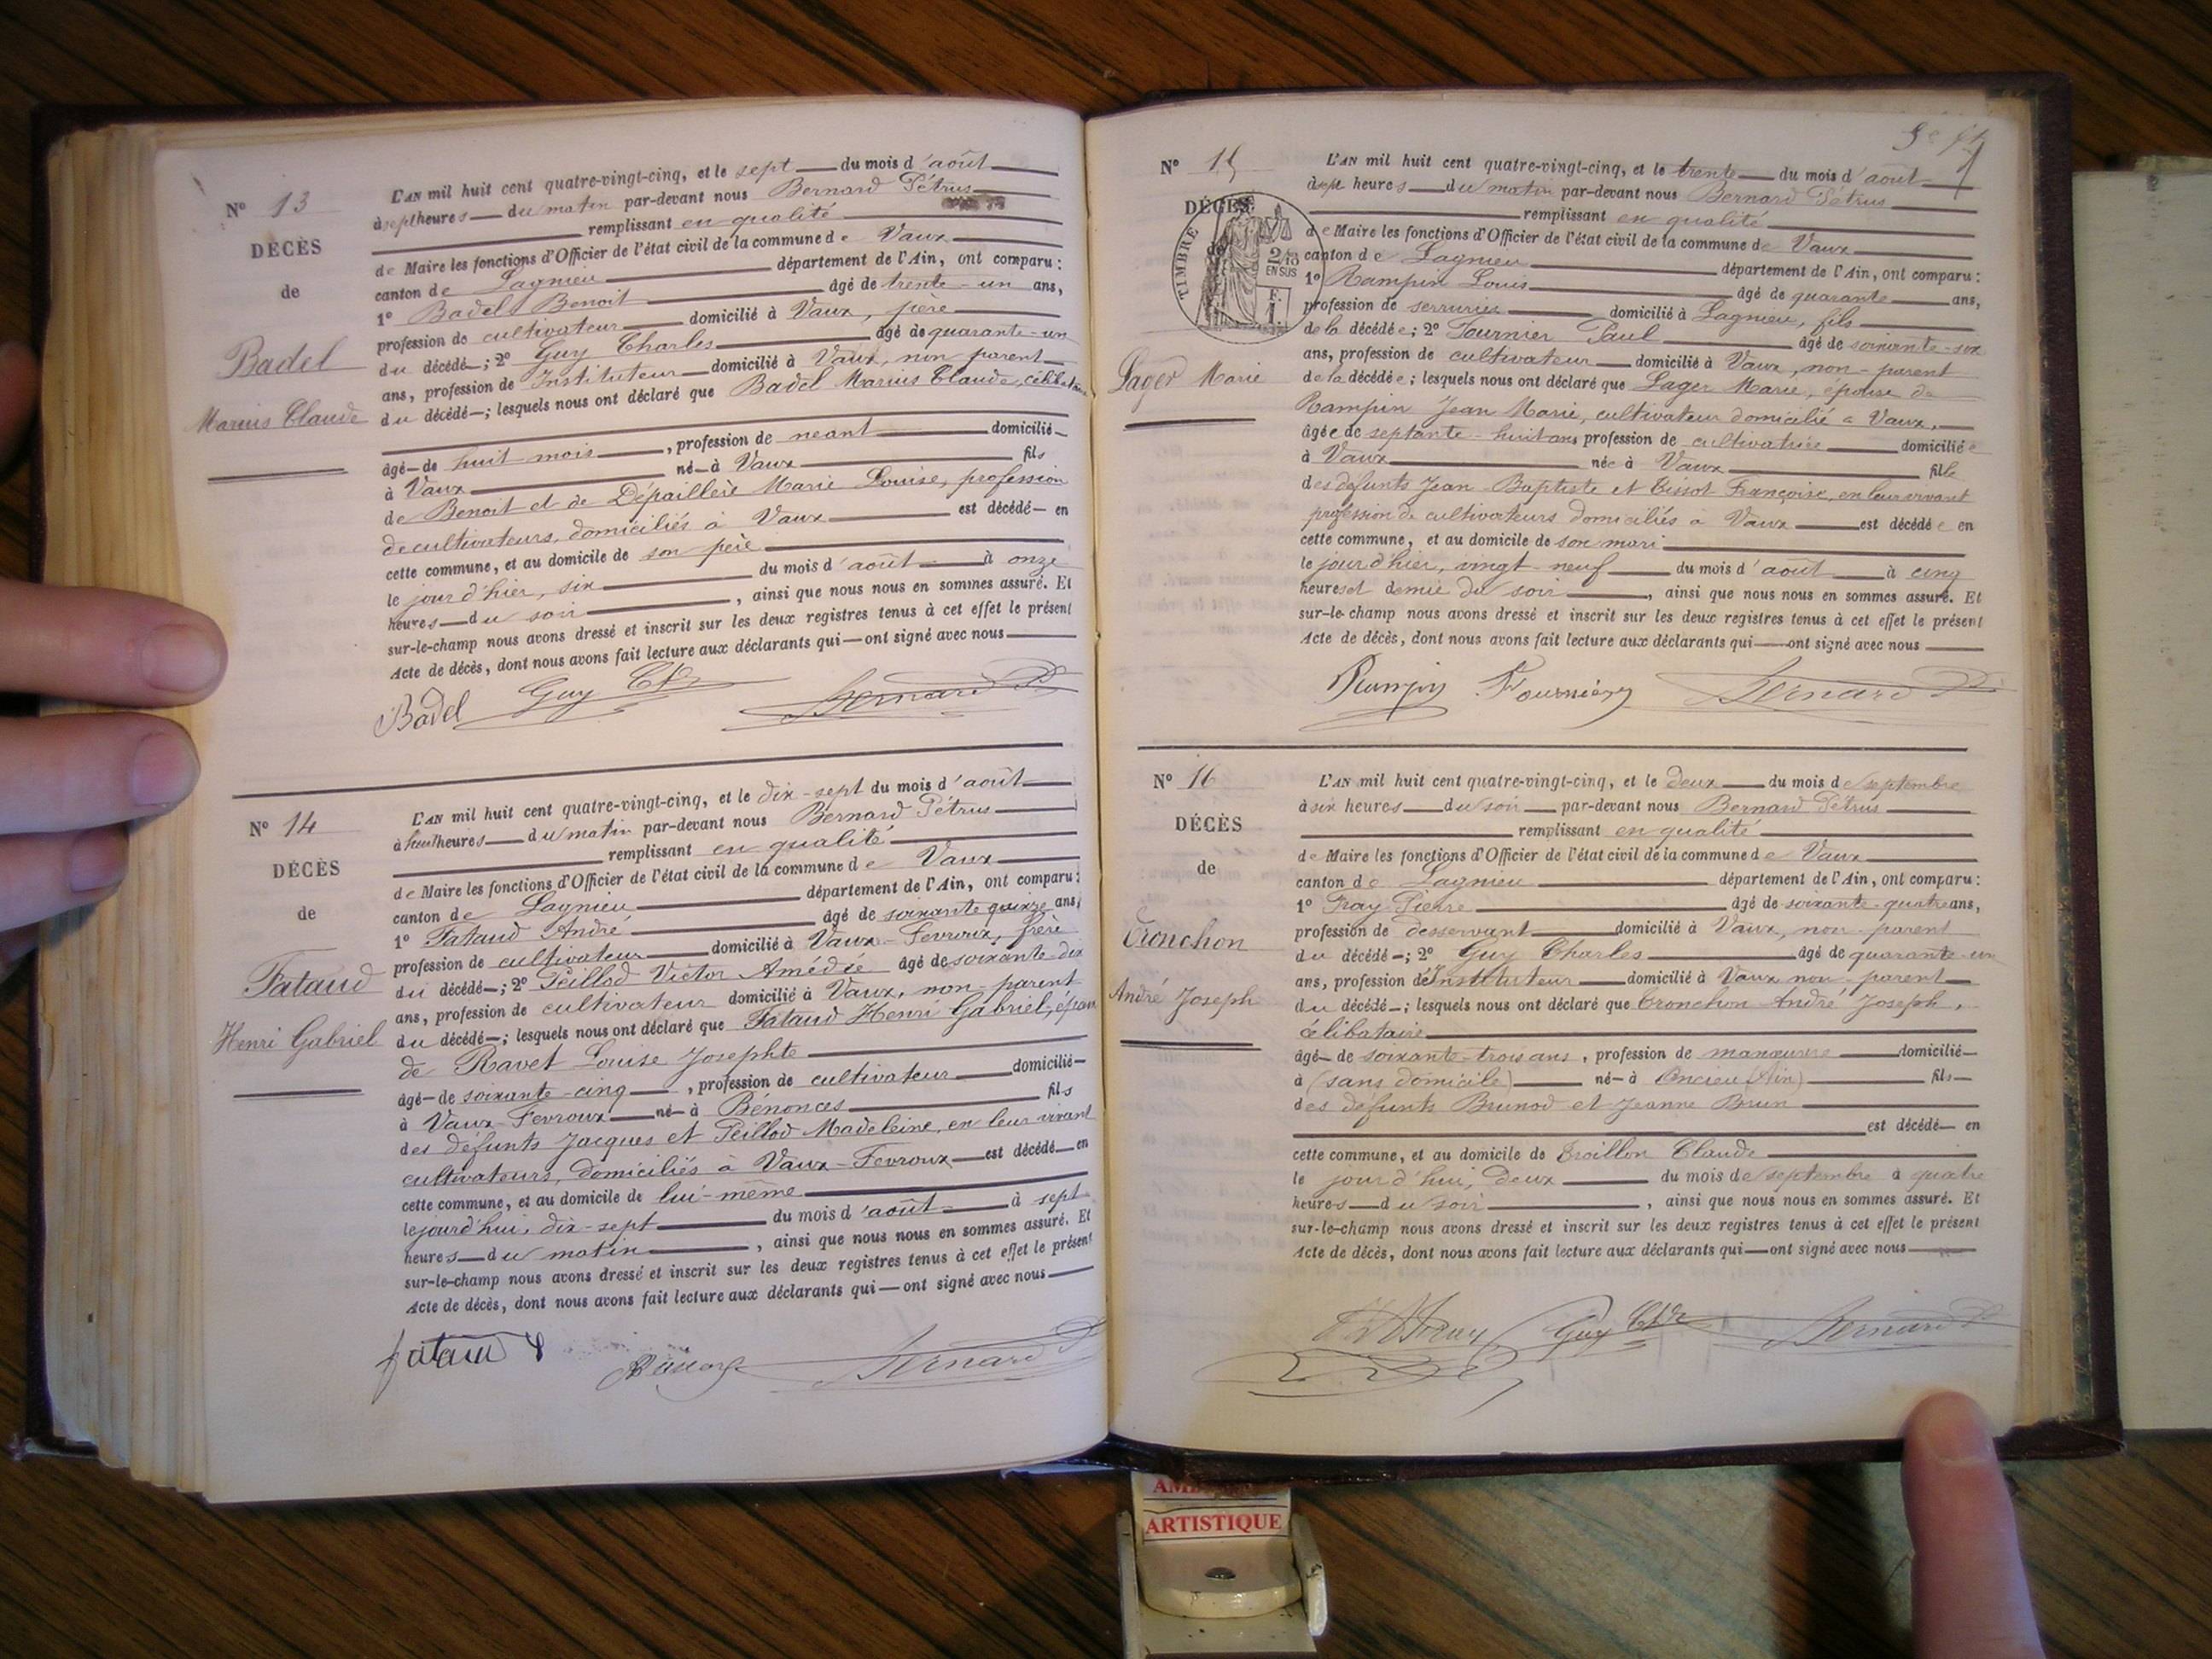 N° 13
DÉCÈS
de
Badel
Marius Claude
L'AN mil huit cent quatre-vingt-cinq, et le sept du mois d'août
à sept heures du matin par-devant nous Bernard Pétrus
remplissant en qualité
de Maire les fonctions d'Officier de l'état civil de la commune de Vaux
canton de Lagnieu département de l'Ain, ont comparu :
1° Badel Benoit âgé de trente-un ans,
profession de cultivateur domicilié à Vaux, père
du décédé ; 2° Guy Charles âgé de quarante-un
ans, profession de Instituteur domicilié à Vaux, non parent
du décédé ; lesquels nous ont déclaré que Badel Marius Claude, célibataire
âgé de huit mois, profession de néant domicilié
à Vaux né à Vaux fils
de Benoit et de Dépaillère Marie Louise, profession
de cultivateurs, domiciliés à Vaux est décédé en
cette commune, et au domicile de son père
le jour d'hier, six du mois d'août à onze
heures du soir, ainsi que nous nous en sommes assuré. Et
sur-le-champ nous avons dressé et inscrit sur les deux registres tenus à cet effet le présent
Acte de décès, dont nous avons fait lecture aux déclarants qui ont signé avec nous
Badel Guy Ch Bernard P
N° 14
DÉCÈS
de
Fataud
Henri Gabriel
L'AN mil huit cent quatre-vingt-cinq, et le dix-sept du mois d'août
à huit heures du matin par-devant nous Bernard Pétrus
remplissant en qualité
de Maire les fonctions d'Officier de l'état civil de la commune de Vaux
canton de Lagnieu département de l'Ain, ont comparu :
1° Fataud André âgé de soixante quinze ans,
profession de cultivateur domicilié à Vaux-Fevroux, frère
du décédé ; 2° Peillod Victor Amédée âgé de soixante dix
ans, profession de cultivateur domicilié à Vaux, non-parent
du décédé ; lesquels nous ont déclaré que Fataud Henri Gabriel, époux
de Ravet Louise Josephte
âgé de soixante-cinq, profession de cultivateur domicilié
à Vaux-Fevroux né à Bénonces fils
des défunts Jacques et Peillod Madeleine, en leur vivant
cultivateurs, domiciliés à Vaux-Fevroux est décédé en
cette commune, et au domicile de lui-même
le jourd'hui, dix-sept du mois d'août à sept
heures du matin, ainsi que nous nous en sommes assuré. Et
sur-le-champ nous avons dressé et inscrit sur les deux registres tenus à cet effet le présent
Acte de décès, dont nous avons fait lecture aux déclarants qui ont signé avec nous
fataud Bernard P
N° 15
DÉCÈS
de
TIMBRE
2/10
EN SUS
F.
1.
Lager Marie
L'AN mil huit cent quatre-vingt-cinq, et le trente du mois d'août
à sept heures du matin par-devant nous Bernard Pétrus
remplissant en qualité
de Maire les fonctions d'Officier de l'état civil de la commune de Vaux
canton de Lagnieu département de l'Ain, ont comparu :
1° Rampin Louis âgé de quarante ans,
profession de serrurier domicilié à Lagnieu, fils
de la décédée ; 2° Fournier Paul âgé de soixante-six
ans, profession de cultivateur domicilié à Vaux, non-parent
de la décédée ; lesquels nous ont déclaré que Lager Marie, épouse de
Rampin Jean Marie, cultivateur domicilié à Vaux,
âgée de septante-huit ans profession de cultivatrice domiciliée
à Vaux née à Vaux fille
des défunts Jean-Baptiste et Tissot Françoise, en leur vivant
profession de cultivateurs domiciliés à Vaux est décédée en
cette commune, et au domicile de son mari
le jour d'hier, vingt-neuf du mois d'août à cinq
heures et demie du soir, ainsi que nous nous en sommes assuré. Et
sur-le-champ nous avons dressé et inscrit sur les deux registres tenus à cet effet le présent
Acte de décès, dont nous avons fait lecture aux déclarants qui ont signé avec nous
Rampin Fournier Bernard P
N° 16
DÉCÈS
de
Tronchon
André Joseph
L'AN mil huit cent quatre-vingt-cinq, et le deux du mois de septembre
à six heures du soir par-devant nous Bernard Pétrus
remplissant en qualité
de Maire les fonctions d'Officier de l'état civil de la commune de Vaux
canton de Lagnieu département de l'Ain, ont comparu :
1° Fray Pierre âgé de soixante-quatre ans,
profession de desservant domicilié à Vaux, non-parent
du décédé ; 2° Guy Charles âgé de quarante-un
ans, profession d'Instituteur domicilié à Vaux non-parent
du décédé ; lesquels nous ont déclaré que Tronchon André Joseph,
célibataire
âgé de soixante-trois ans, profession de manœuvre domicilié
à (sans domicile) né à Oncieu (Ain) fils
des défunts Brunod et Jeanne Brun
est décédé en
cette commune, et au domicile de Troillon Claude
le jourd'hui, deux du mois de septembre à quatre
heures du soir, ainsi que nous nous en sommes assuré. Et
sur-le-champ nous avons dressé et inscrit sur les deux registres tenus à cet effet le présent
Acte de décès, dont nous avons fait lecture aux déclarants qui ont signé avec nous
Fray Guy Ch Bernard P
ARTISTIQUE